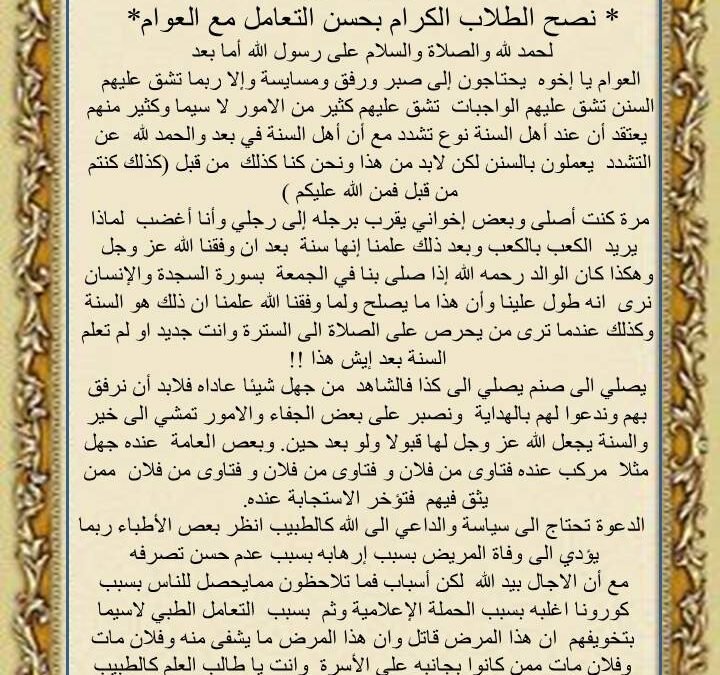 * نصح الطلاب الكرام بحسن التعامل مع العوام*
لحمد لله والصلاة والسلام على رسول الله أما بعد
العوام يا إخوه يحتاجون إلى صبر ورفق ومسايسة وإلا ربما تشق عليهم
السنن تشق عليهم الواجبات تشق عليهم كثير من الامور لا سيما وكثير منهم
يعتقد أن عند أهل السنة نوع تشدد مع أن أهل السنة في بعد والحمد لله عن
التشدد يعملون بالسنن لكن لابد من هذا ونحن كنا كذلك من قبل (كذلك كنتم
من قبل فمن الله عليكم )
مرة كنت أصلى وبعض إخواني يقرب برجله إلى رجلي وأنا أغضب لماذا
يريد الكعب بالكعب وبعد ذلك علمنا إنها سنة بعد ان وفقنا الله عز وجل
وهكذا كان الوالد رحمه الله إذا صلى بنا في الجمعة بسورة السجدة والإنسان
نرى انه طول علينا وأن هذا ما يصلح ولما وفقنا الله علمنا ان ذلك هو السنة
وكذلك عندما ترى من يحرص على الصلاة الى السترة وانت جديد او لم تعلم
السنة بعد إيش هذا !!
يصلي الى صنم يصلي الى كذا فالشاهد من جهل شيئا عاداه فلابد أن نرفق
بهم وندعوا لهم بالهداية ونصبر على بعض الجفاء والامور تمشي الى خير
والسنة يجعل الله عز وجل لها قبولا ولو بعد حين. وبعص العامة عنده جهل
مثلا مركب عنده فتاوى من فلان و فتاوى من فلان و فتاوى من فلان ممن
يثق فيهم فتؤخر الاستجابة عنده.
الدعوة تحتاج الى سياسة والداعي الى الله كالطبيب انظر بعض الأطباء ربما
يؤدي الى وفاة المريض بسبب إرهابه بسبب عدم حسن تصرفه
مع أن الاجال بيد الله لكن أسباب فما تلاحظون ممايحصل للناس بسبب
كورونا اغلبه بسبب الحملة الإعلامية وثم بسبب التعامل الطبي لاسيما
بتخويفهم ان هذا المرض قاتل وان هذا المرض ما يشفى منه وفلان مات
وفلان مات ممن كانوا بجانبه على الأسرة وانت يا طالب العلم كالطبيب